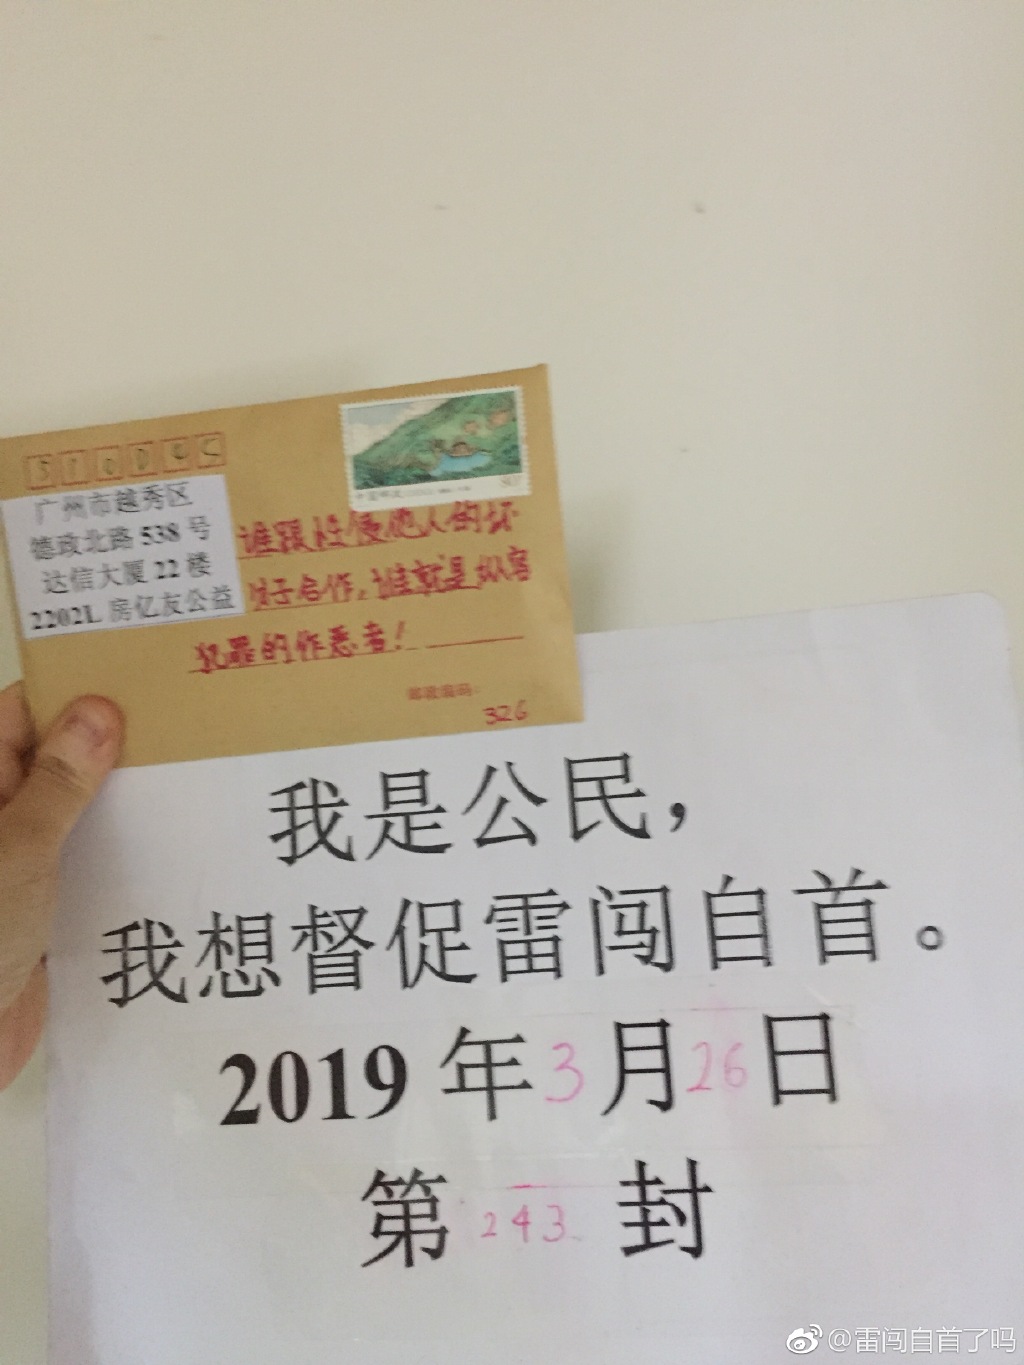 510045
广州市越秀区
德政北路 538 号
达信大厦 22 楼
2202L 房亿友公益
谁跟性侵他人的坏
分子合作，谁就是纵容
犯罪的作恶者！
邮政编码：
326
我是公民，
我想督促雷闯自首。
2019 年 3 月 26 日
第 243 封
@雷闯自首了吗